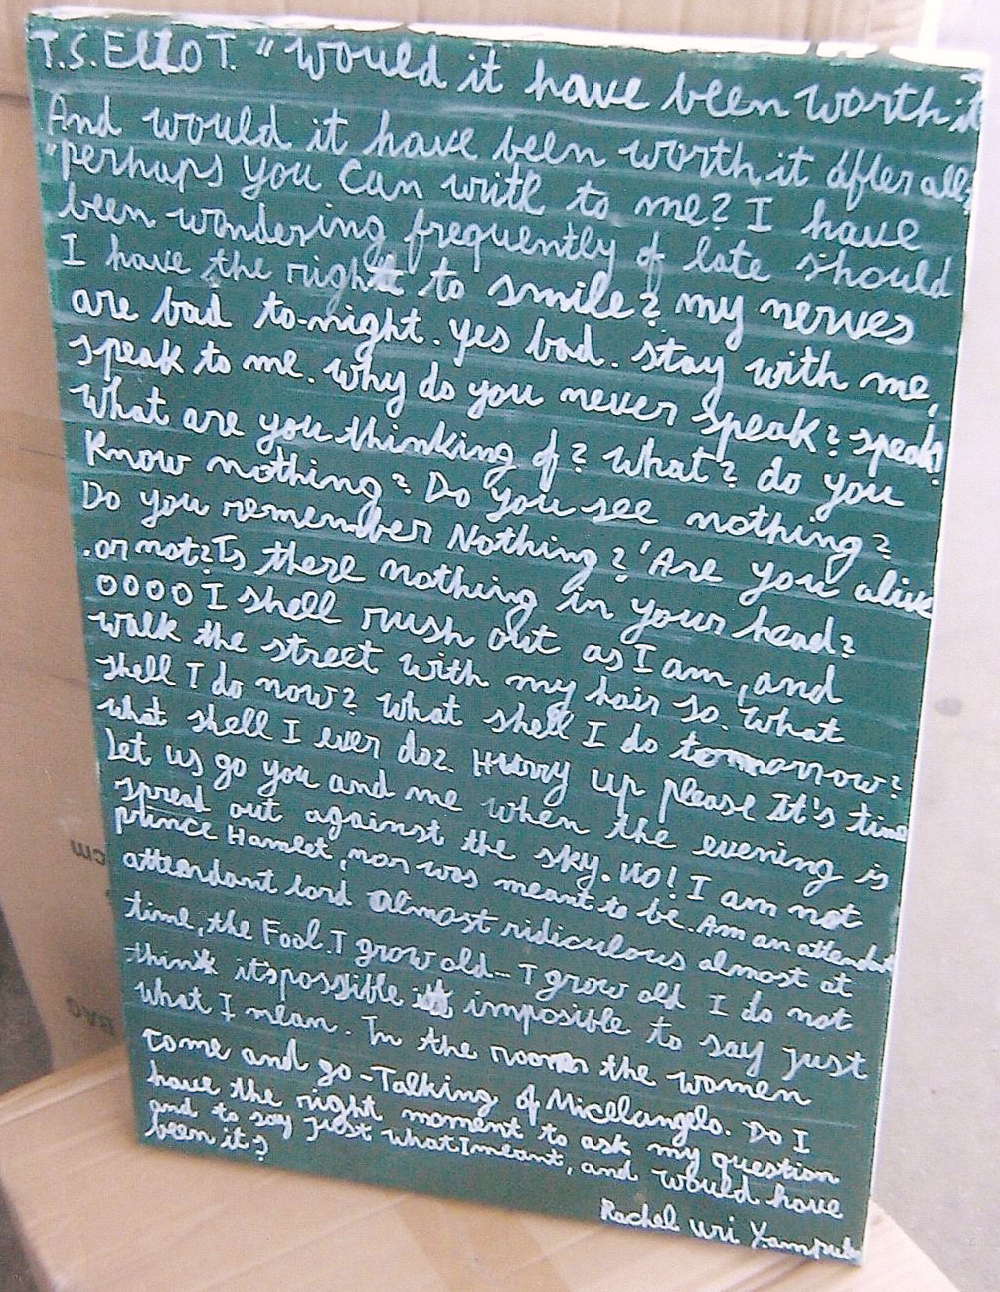 T.S. ELIOT. "Would it have been worth it
And would it have been worth it after all,
"perhaps you can writh to me? I have
been wondering frequently of late should
I have the right to smile? my nerves
are bad to-night. yes bad. stay with me,
speak to me. why do you never speak? speak!
What are you thinking of? what? do you
Know nothing? Do you see nothing?
Do you remember Nothing? 'Are you alive
.or not? Is there nothing in your head?
OOOO I shell rush out as I am, and
walk the street with my hair so. What
shell I do now? what shell I do tomorrow?
what shell I ever do? Hurry up please It's time
Let us go you and me when the evening is
spread out against the sky. No! I am not
prince Hamlet, nor was meant to be. Am an attendant
attendant lord almost ridiculous almost at
time, the Fool. I grow old - I grow old I do not
think its possible it impossible to say just
what I mean. In the room the women
come and go - Talking of Micelangelo. Do I
have the right moment to ask my question
and to say just what I meant, and would have
been it?
Rachel Uri